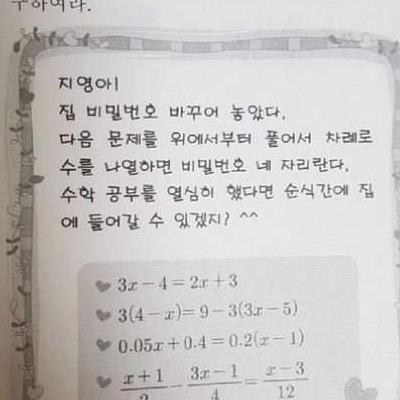 구하여라.
지영아!
집 비밀번호 바꾸어 놓았다.
다음 문제를 위에서부터 풀어서 차례로
수를 나열하면 비밀번호 네 자리란다.
수학 공부를 열심히 했다면 순식간에 집
에 들어갈 수 있겠지? ^^
3x-4=2x+3
3(4-x)=9-3(3x-5)
0.05x+0.4=0.2(x-1)
(x+1)/2-(3x-1)/4=(x-3)/12